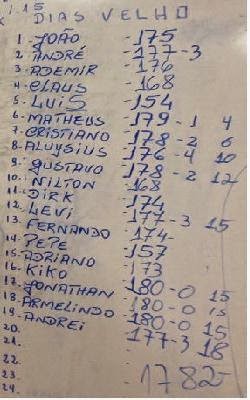 : 15
DIAS VELHO
1-JOÃO -175
2-ANDRÉ -177-3
3-ADEMIR -176
4-CLAUS -168
5-LUIS -154
6-MATHEUS -179-1 4
7-CRISTIANO -178-2 6
8-ALUYSIUS -176-4 10
9-GUSTAVO -178-2 12
10-NILTON -168
11-DIRK -174
12-LEVI -177-3 15
13-FERNANDO -174-
14-PEPE -157
15-ADRIANO -173
16-KIKO -180-0 15
17-JONATHAN -180-0 15
18-ARMELINDO -180-0 15
19-ANDREI -177-3 18
20.
21.
22. -1782
23.
24.